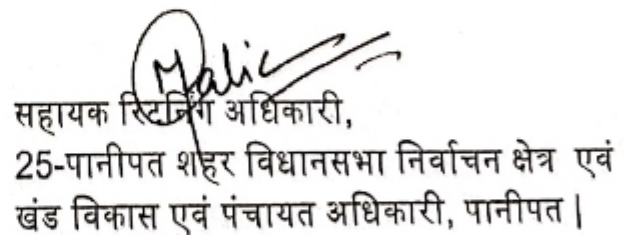 Malic
सहायक रिटर्निंग अधिकारी,
25-पानीपत शहर विधानसभा निर्वाचन क्षेत्र एवं
खंड विकास एवं पंचायत अधिकारी, पानीपत |